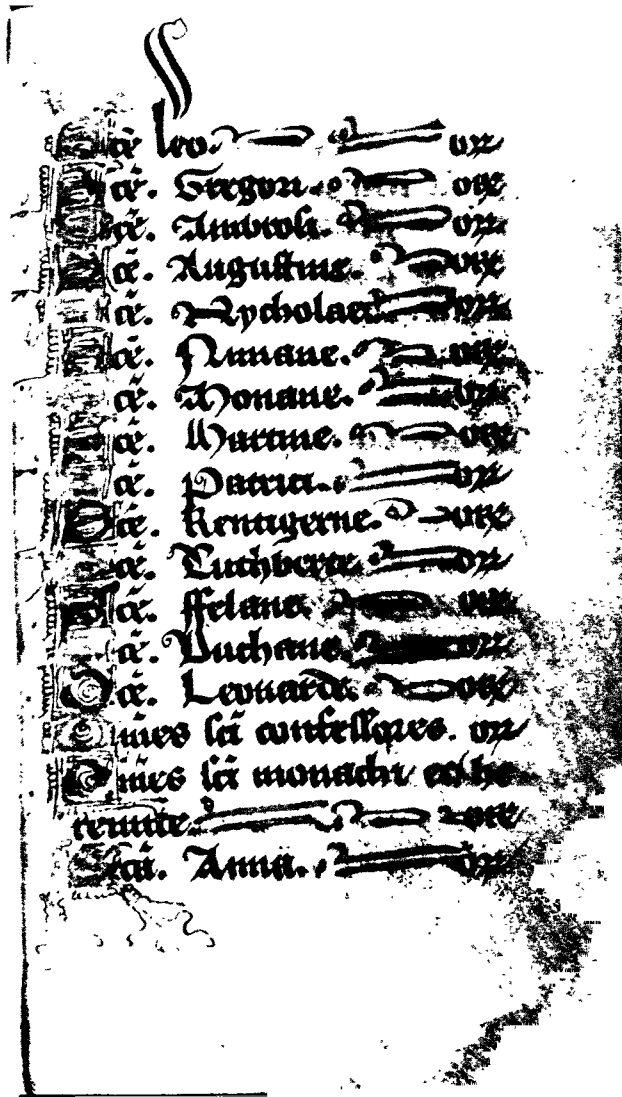 Scē leo. or
Scē. Gregori. ore
Scē. Ambrosi. or
Scē. Augustine. ore
Scē. Nycholae. or
Scē. Niniane. ore
Scē. Monane. or
Scē. Martine. ore
Scē. Patrici. or
Scē. Kentigerne. ore
Scē. Cuthberte. or
Scē. ffelane. ore
Scē. Duthane. or
Scē. Leonarde. ore
Omēs sci confessores. or
Omēs sci monachi et he
remite. ore
Scā. Anna. or